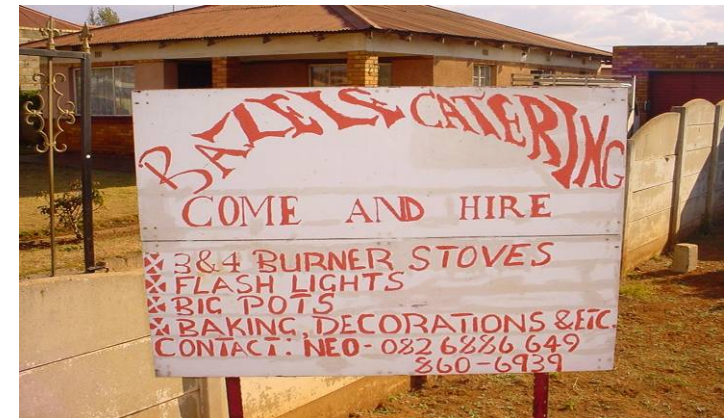 BAZELE CATERING
COME AND HIRE
3&4 BURNER STOVES
FLASH LIGHTS
BIG POTS
BAKING, DECORATIONS & ETC.
CONTACT: NEO - 082 6886 649
860-6939